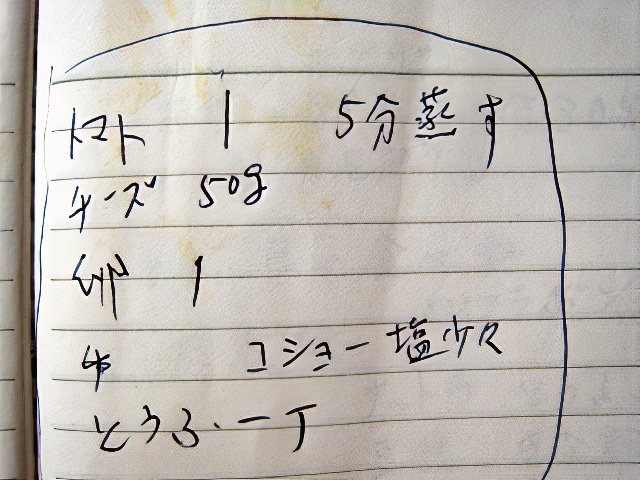 トマト 1 5分蒸す
チーズ 50g
卵 1
コショー 塩少々
とうふ.一丁